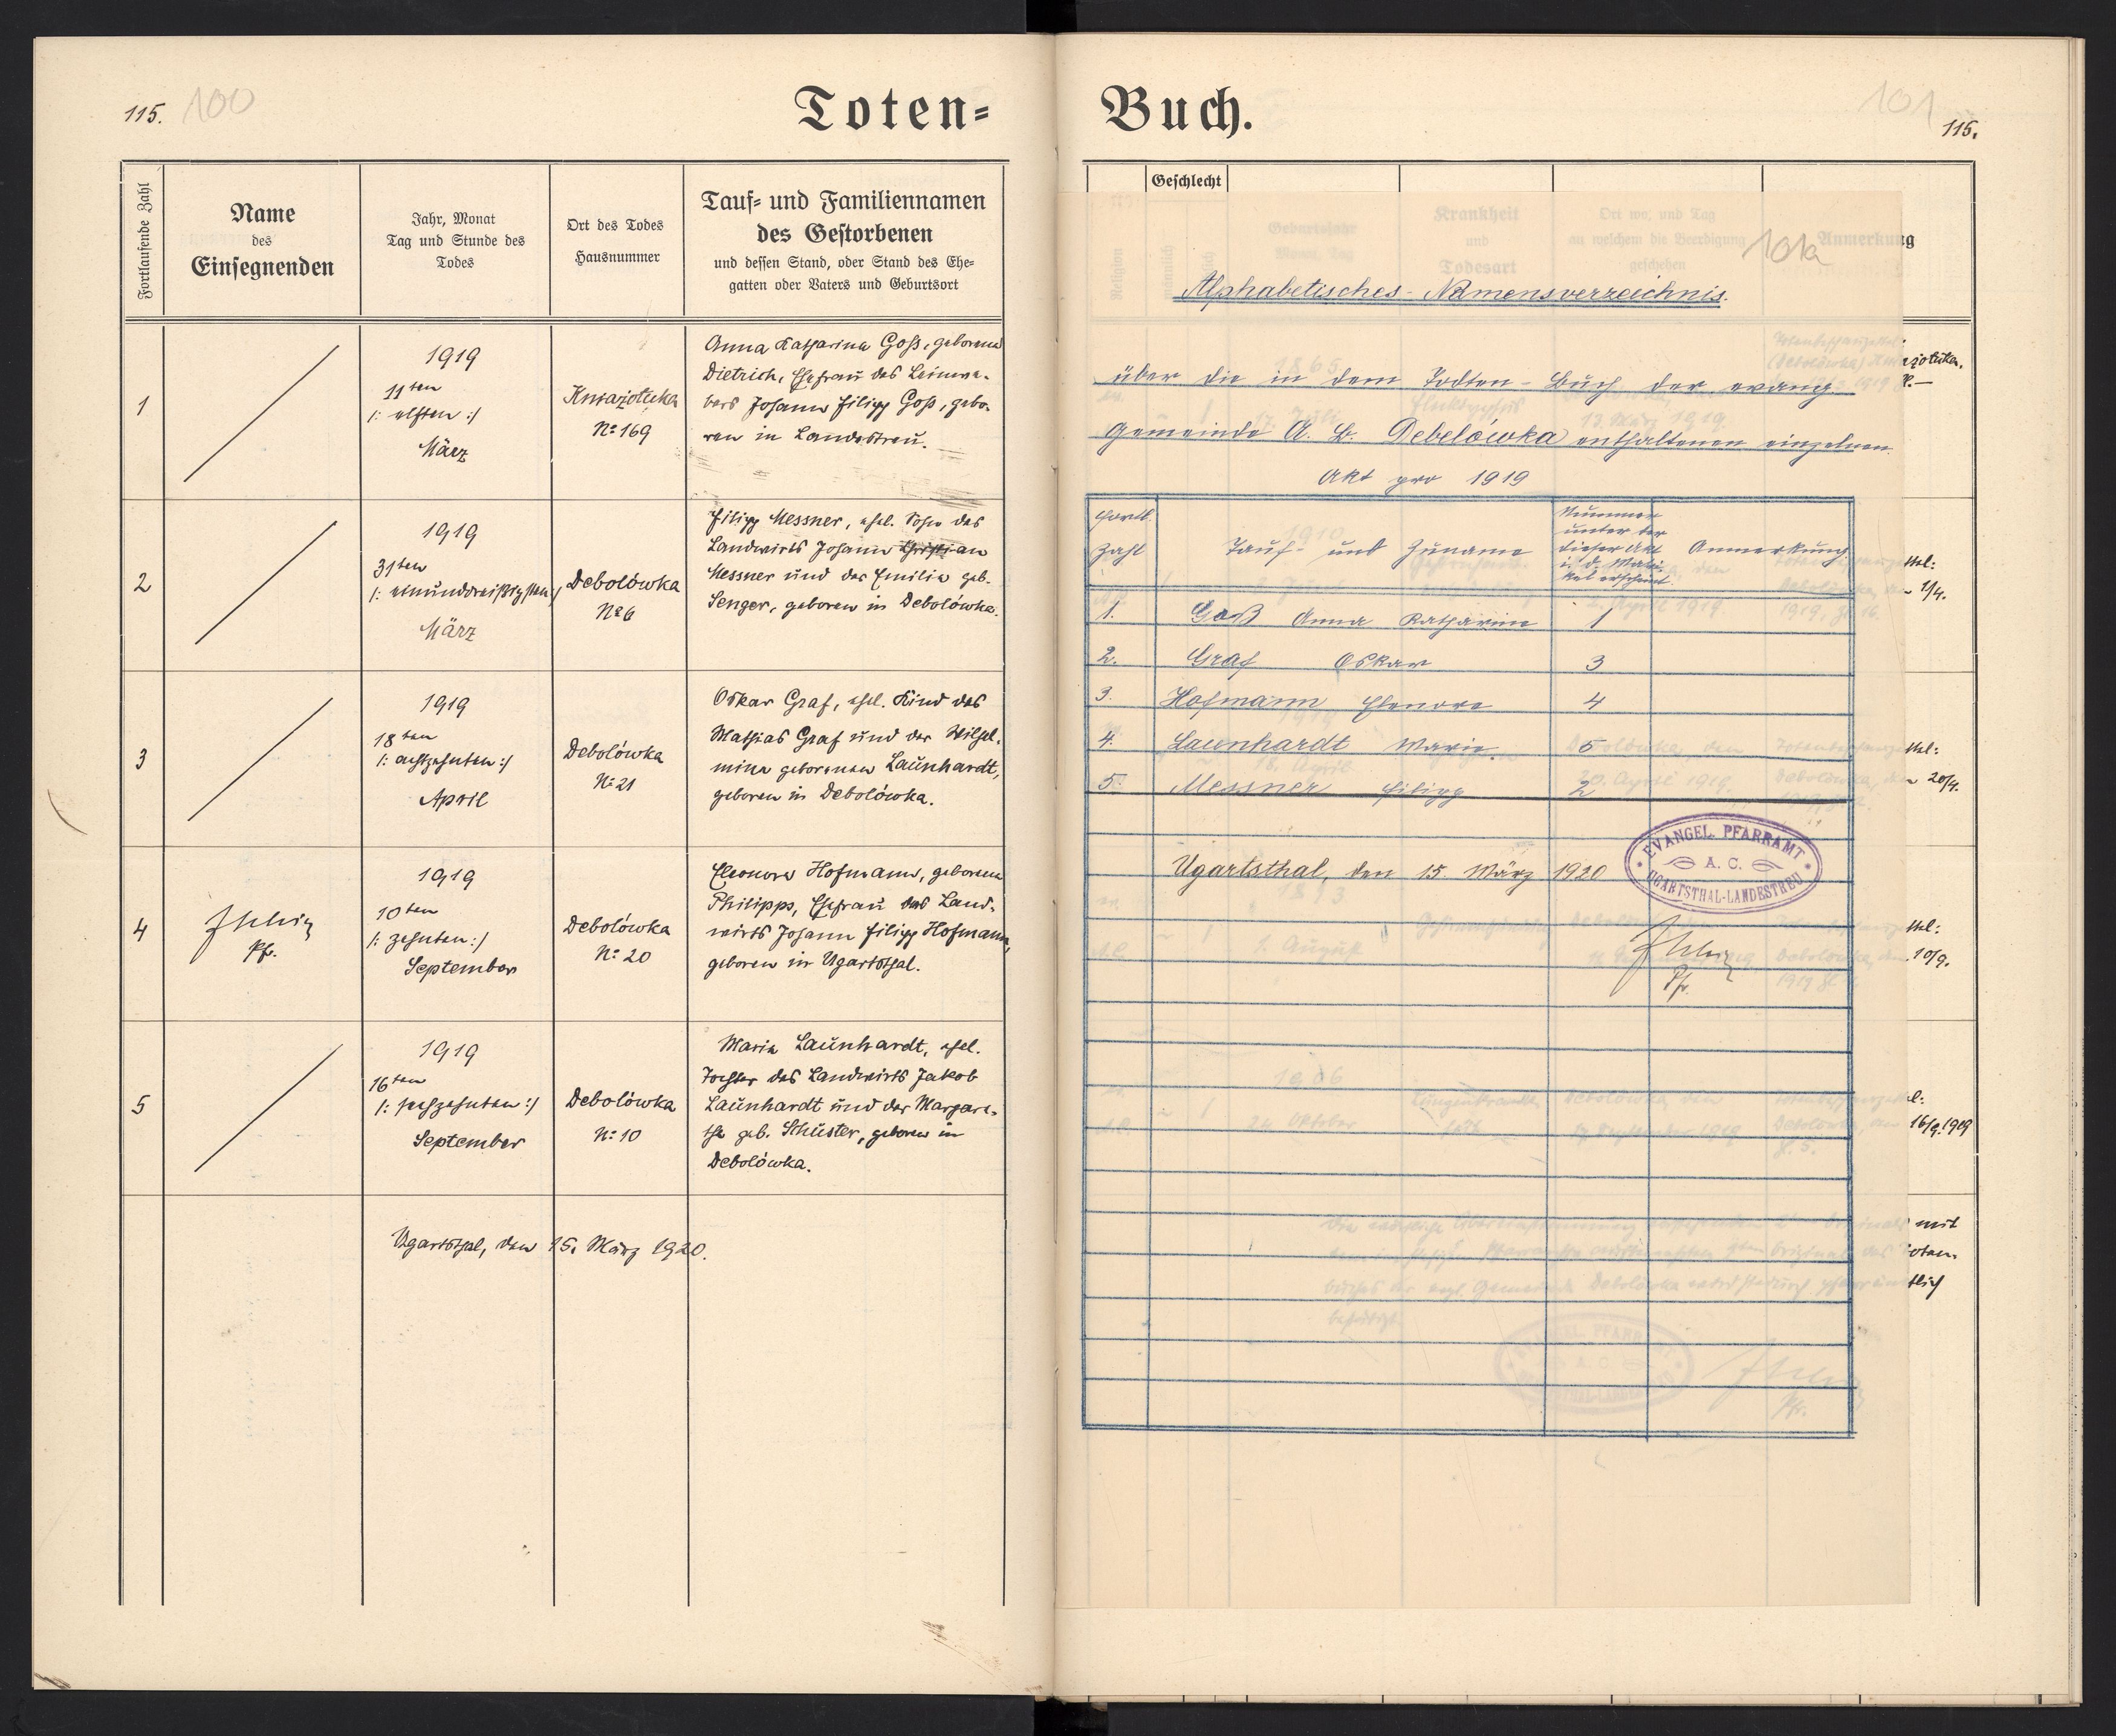 115. 100
Toten=
Fortlaufende Zahl
Name
des
Einsegnenden
Jahr, Monat
Tag und Stunde des
Todes
Ort des Todes
Hausnummer
Tauf= und Familiennamen
des Gestorbenen
und dessen Stand, oder Stand des Ehe=
gatten oder Vaters und Geburtsort
1
1919
11ten
/: elften :/
März
Kniazołuka
No 169
Anna Katharina Goß, geborene
Dietrich, Ehefrau des Leinwe-
bers Johann Filipp Goß, gebo-
ren in Landestreu.
2
1919
31ten
/: einunddreißigsten :/
März
Debolówka
No 6
Filipp Messner, ehel. Sohn des
Landwirts Johann Christian
Messner und der Emilie geb.
Senger, geboren in Debolówka.
3
1919
18ten
/: achtzehnten :/
April
Debolówka
No 21
Oskar Graf, ehel. Kind des
Mathias Graf und der Wilhel-
mine geborenen Launhardt,
geboren in Debolówka.
4
Pfr.
1919
10ten
/: zehnten :/
September
Debolówka
No 20
Eleonore Hofmann, geborene
Philipps, Ehefrau des Land-
wirts Johann Filipp Hofmann,
geboren in Ugartsthal.
5
1919
16ten
/: sechzehnten :/
September
Debolówka
No 10
Maria Launhardt, ehel.
Tochter des Landwirts Jakob
Launhardt und der Margare-
the geb. Schuster, geboren in
Debolówka.
Ugartsthal, den 15. März 1920.
Buch.
101
115.
Geschlecht
101a
Alphabetisches Namensverzeichnis.
über die in dem Todten-Buch der evang.
Gemeinde A. B. Debelówka enthaltenen einzelnen
Akt pro 1919
Fortl.
Zahl
Tauf- und Zuname
Nummer
unter der
dieser Akt
i. d. Matri-
kel erscheint.
Anmerkung
1. Goß Anna Katharina 1
2. Graf Oskar 3
3. Hofmann Elenore 4
4. Launhardt Marie 5
5. Messner Filipp 2
Ugartsthal, den 15. März 1920
EVANGEL. PFARRAMT
A. C.
UGARTSTHAL-LANDESTREU
Pfr.
1/4.
20/4.
10/9.
16/9.1919
mit